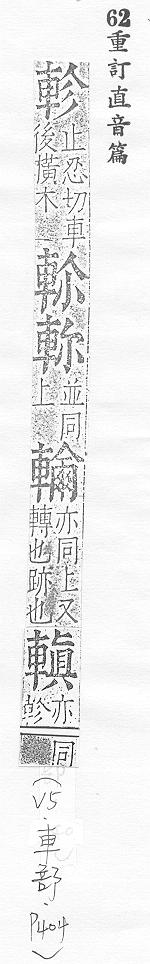 62重訂直音篇
軫 止忍切車
後橫木一
並同
上
亦同上又
轉也跡也
亦同
軫
(V5.車部.P404)